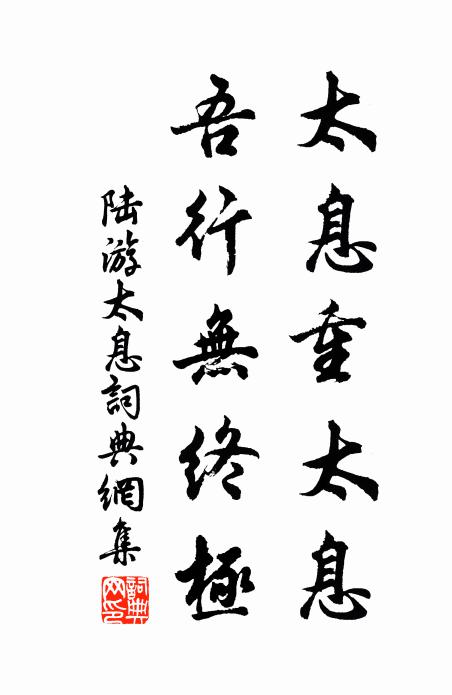 太息重太息
吾行無終極
陸游太息詞典網集
詞典網印